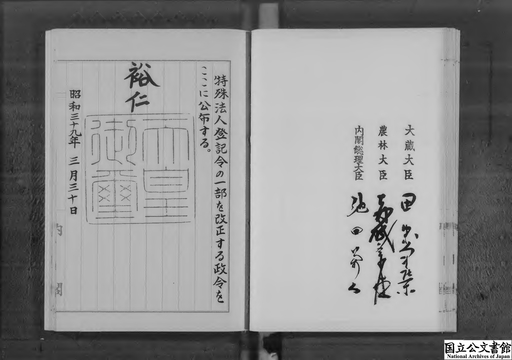 特殊法人登記令の一部を改正する政令を
ここに公布する。
裕仁
天皇
御璽
昭和三十九年 三月三十日
大蔵大臣 田中角栄
農林大臣
内閣総理大臣 池田勇人
国立公文書館
National Archives of Japan